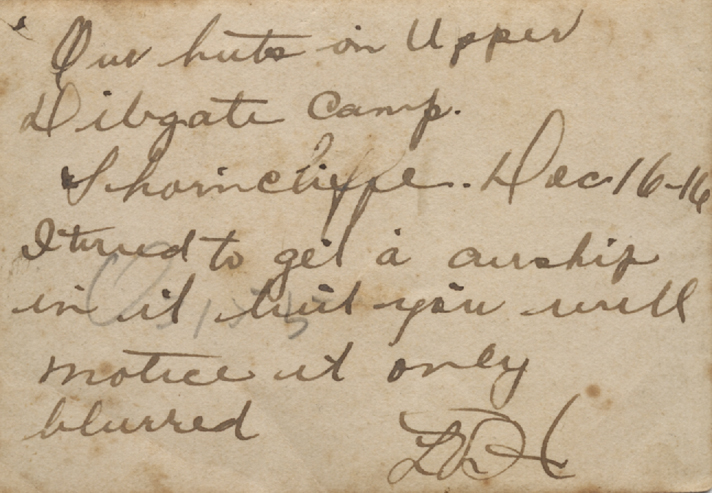 Our huts in Upper
Dibgate Camp.
Shorncliffe. Dec 16-16
I tried to get a airship
in it but you will
notice it only
blurred